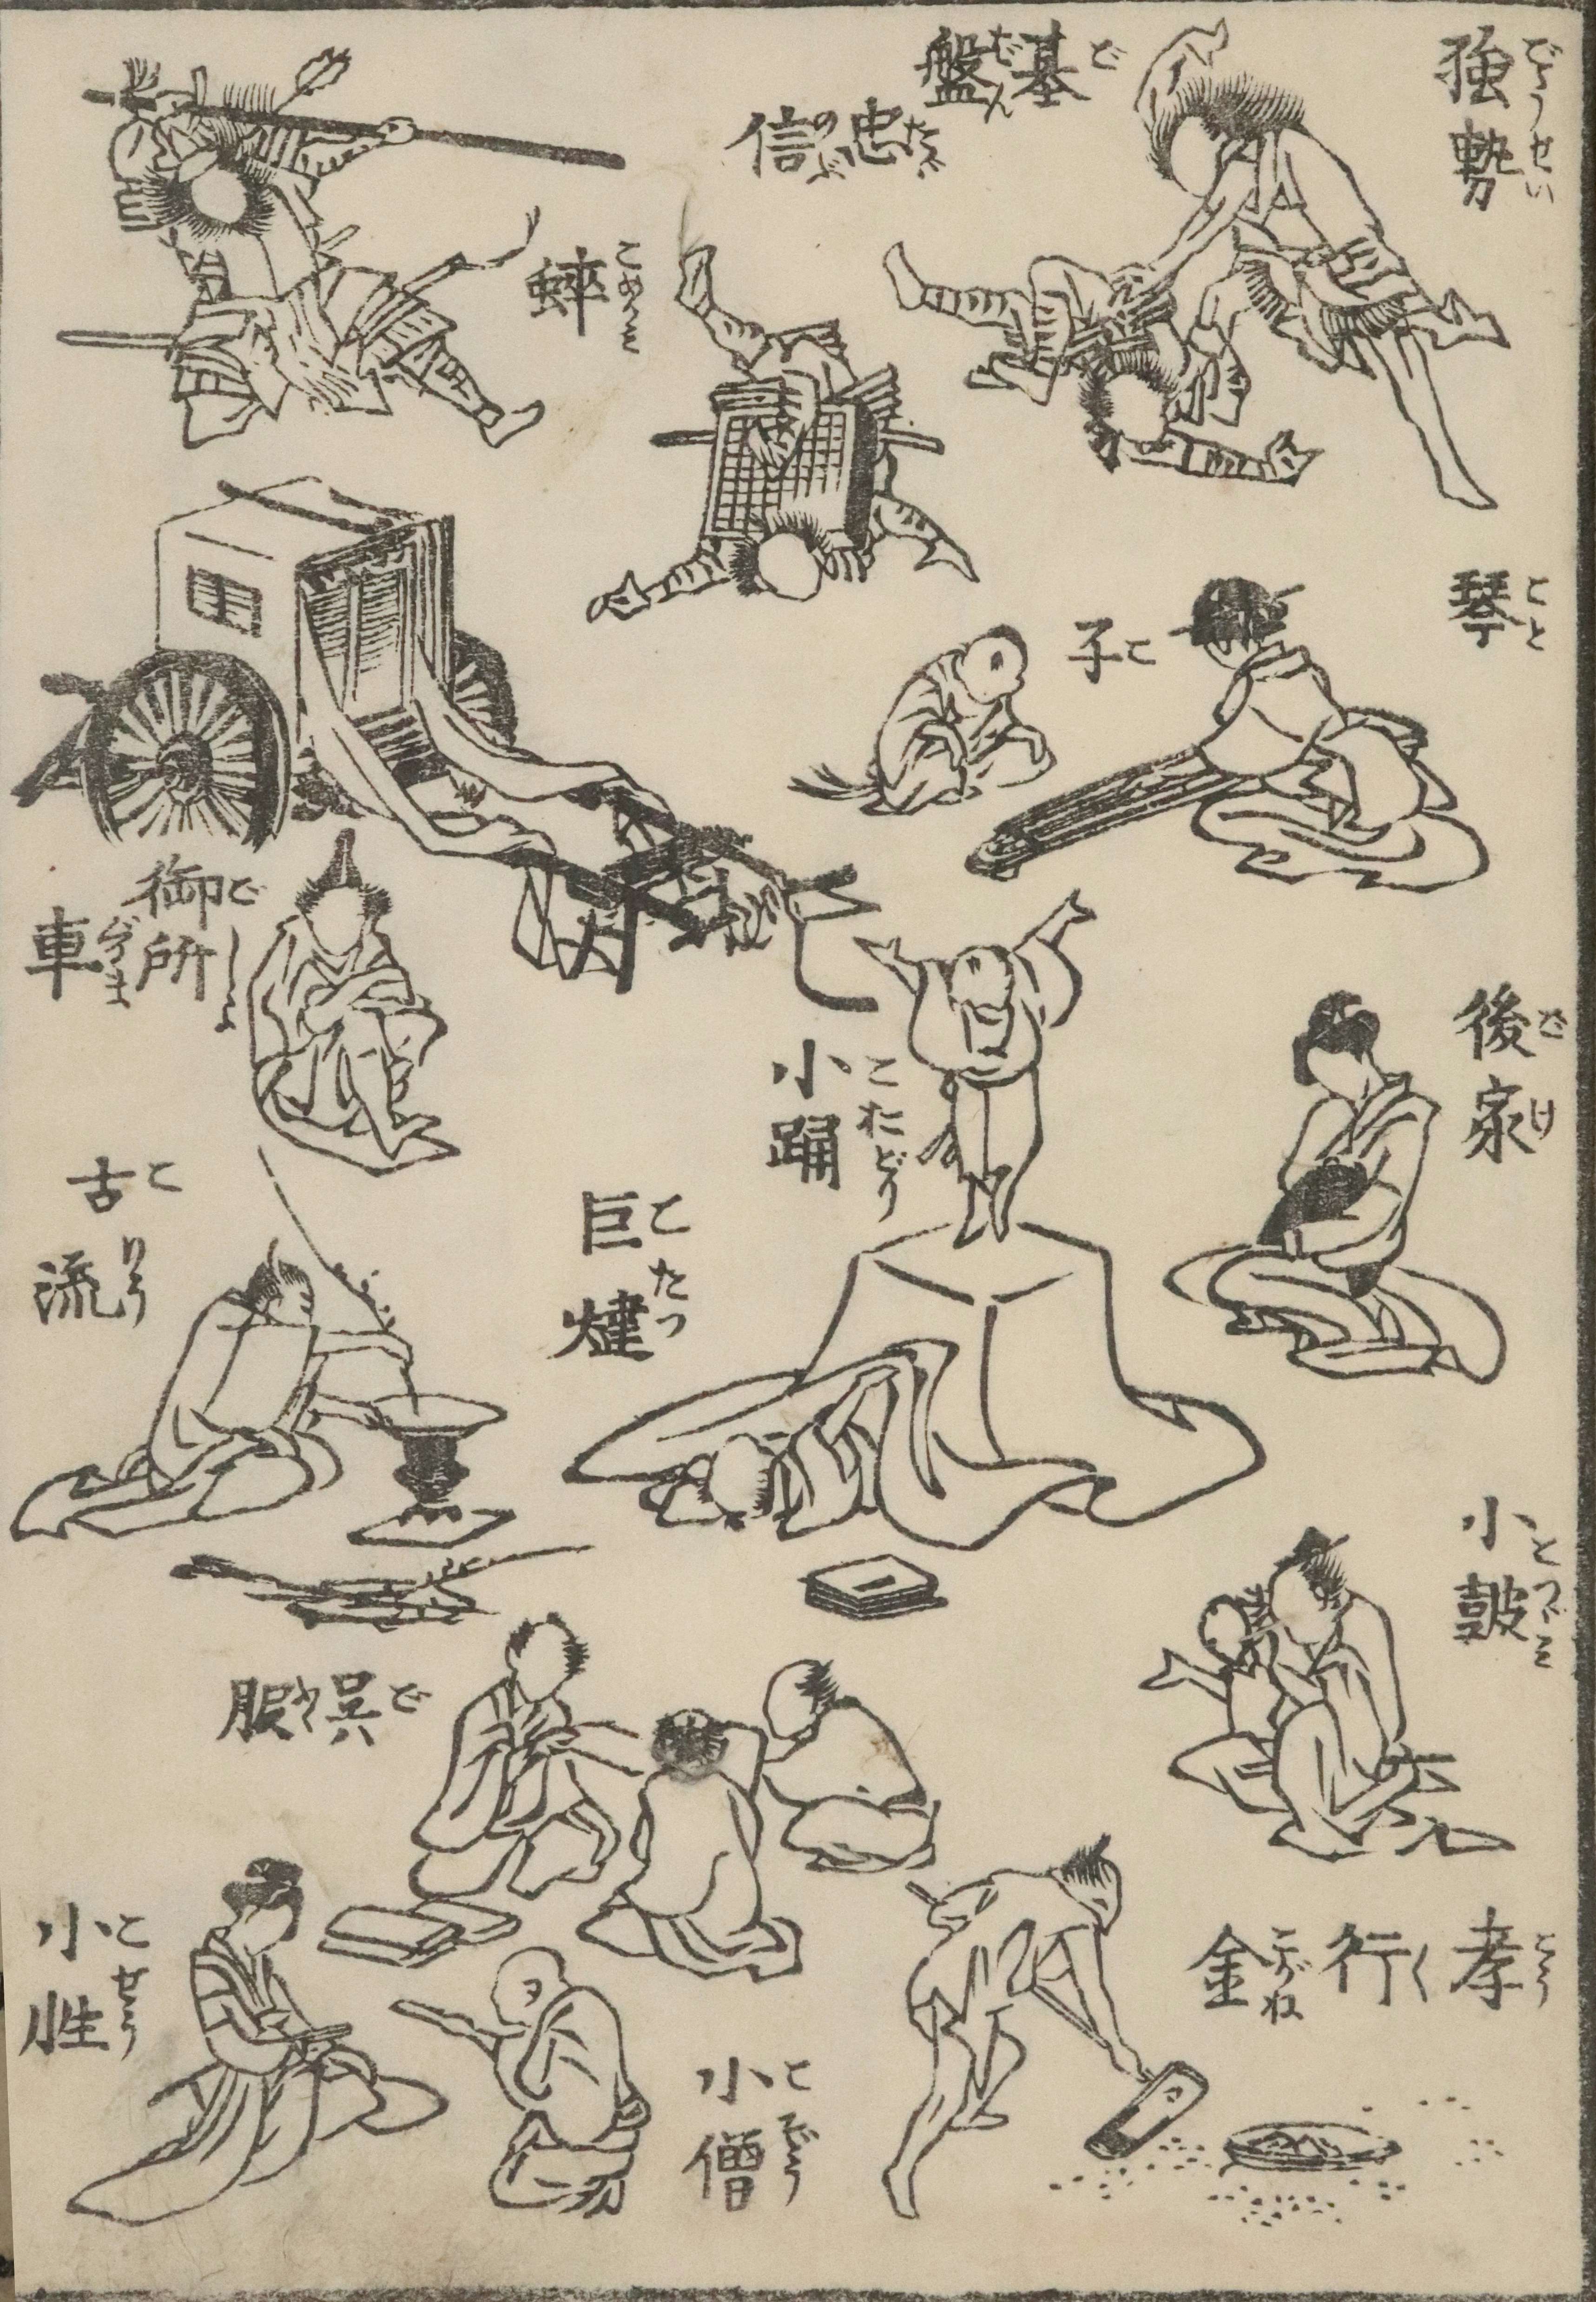 強勢
ごうせい
碁盤
ごばん
忠信
たゞのぶ
琴
こと
子
こ
後家
ごけ
小踊
こおどり
小鼓
こつゞミ
孝行
こうく
金
こがね
巨燵
こたつ
御所
ごしよ
車
ぐるま
古流
こりう
呉服
ごふく
小性
こせう
小僧
こぞう